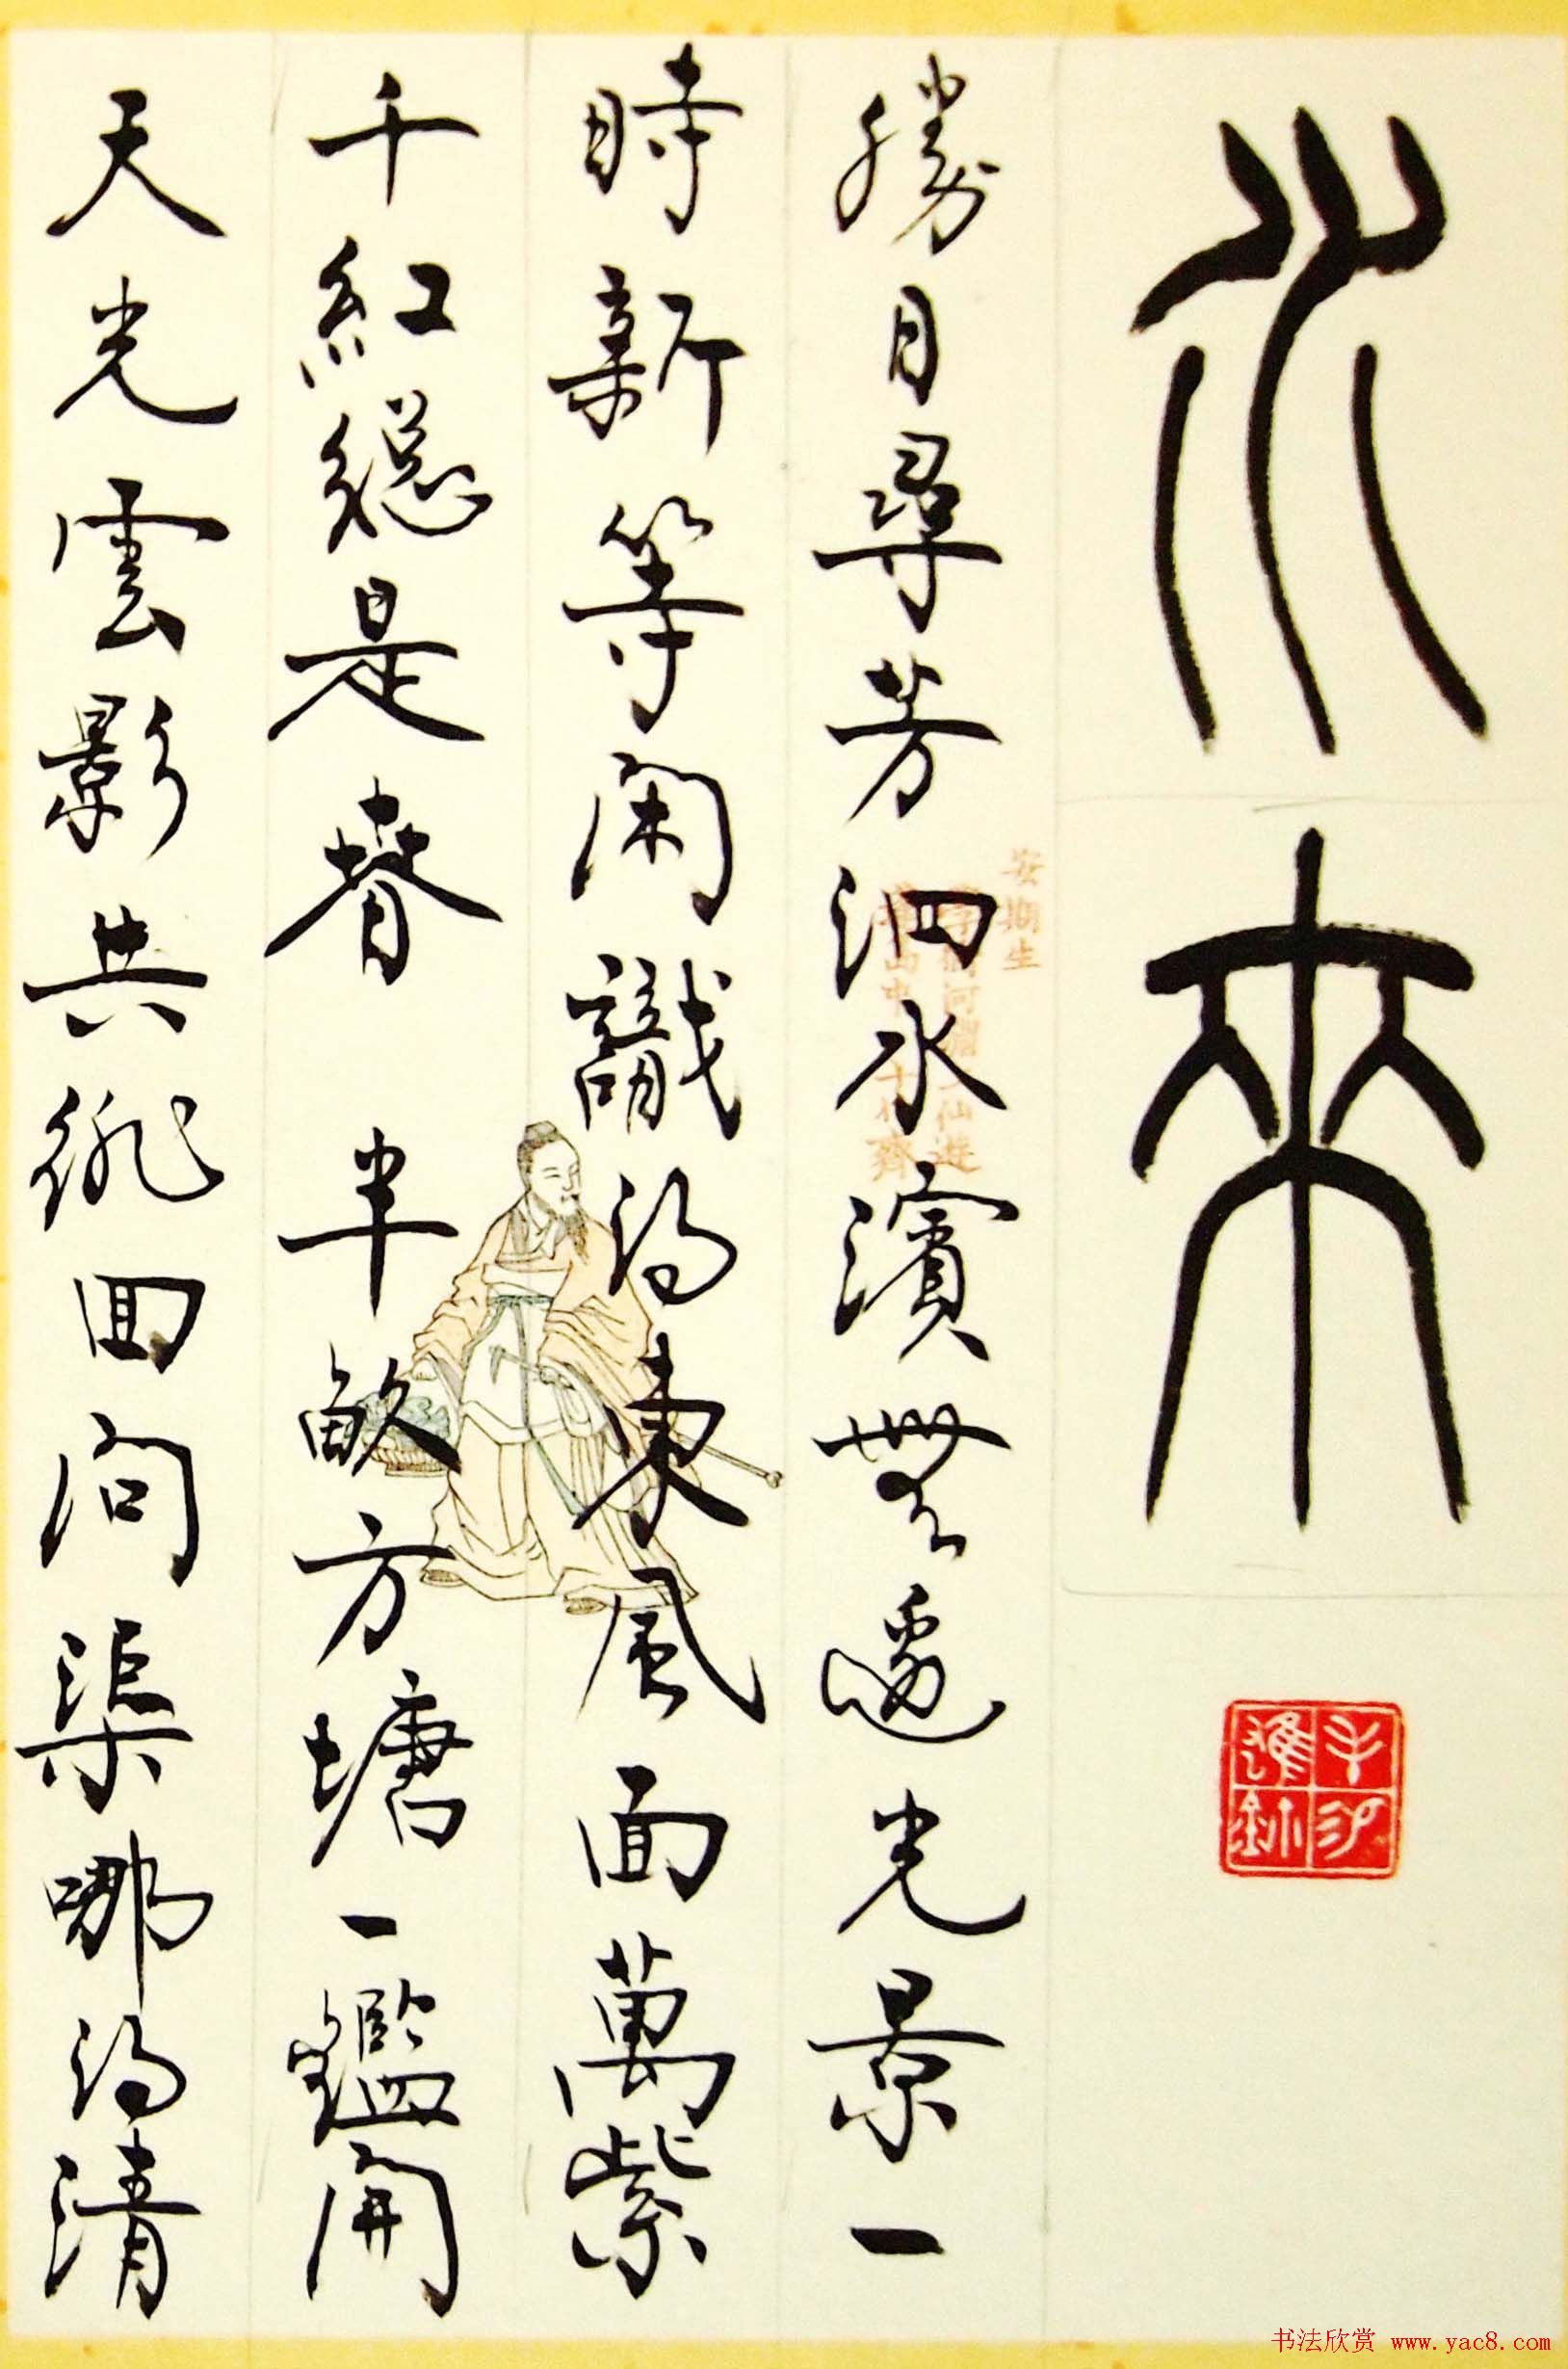 永來
勝日尋芳泗水濱無邊光景一
時新等閑識得東風面萬紫
千紅總是春 半畝方塘一鑑開
天光雲影共徘徊問渠哪得清
安期生
书法欣赏 www.yac8.com